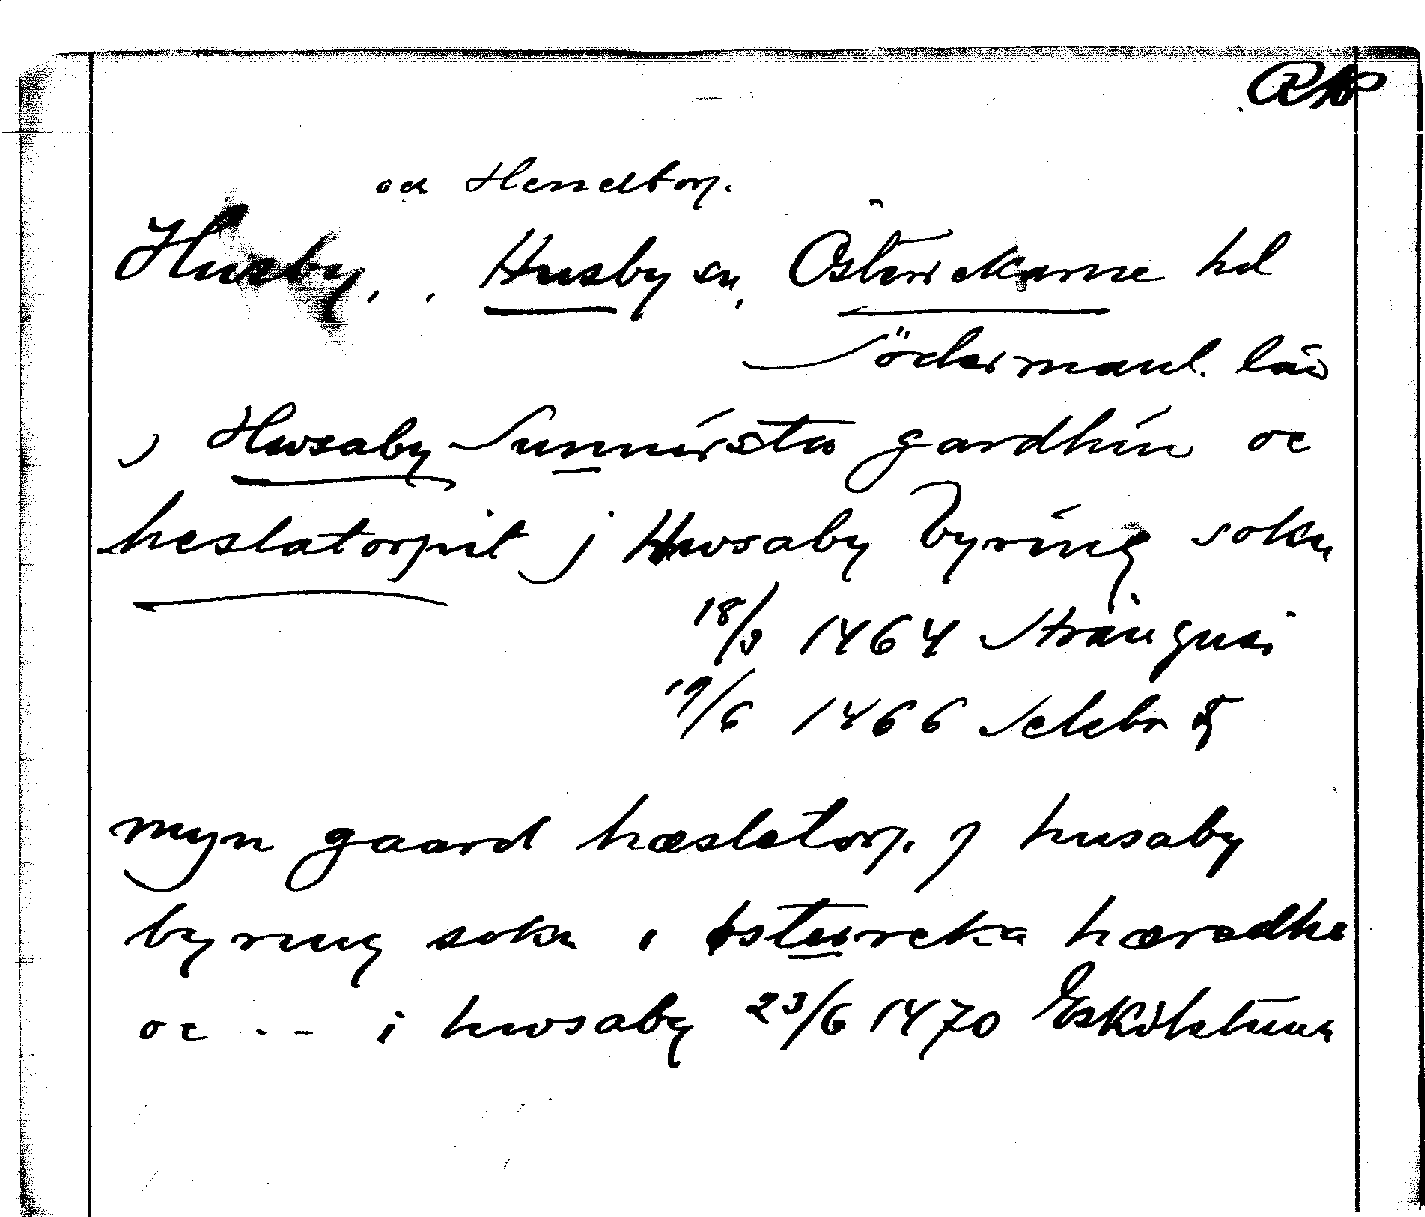 RAP
och Hesseltorp.
Husby, . Husby sn, Österrekarne hd
Södermanl. län
j Hwsaby Sunnirsta gardhin oc
heslatorpit j Hwsaby byring sokn
18/3 1464 Strängnäs
19/6 1466 Selebr
myn gaard hæsletorp j husaby
byring sokn i østerreka hæradhe
oc - - i hwsaby 23/6 1470 Eskilstuna